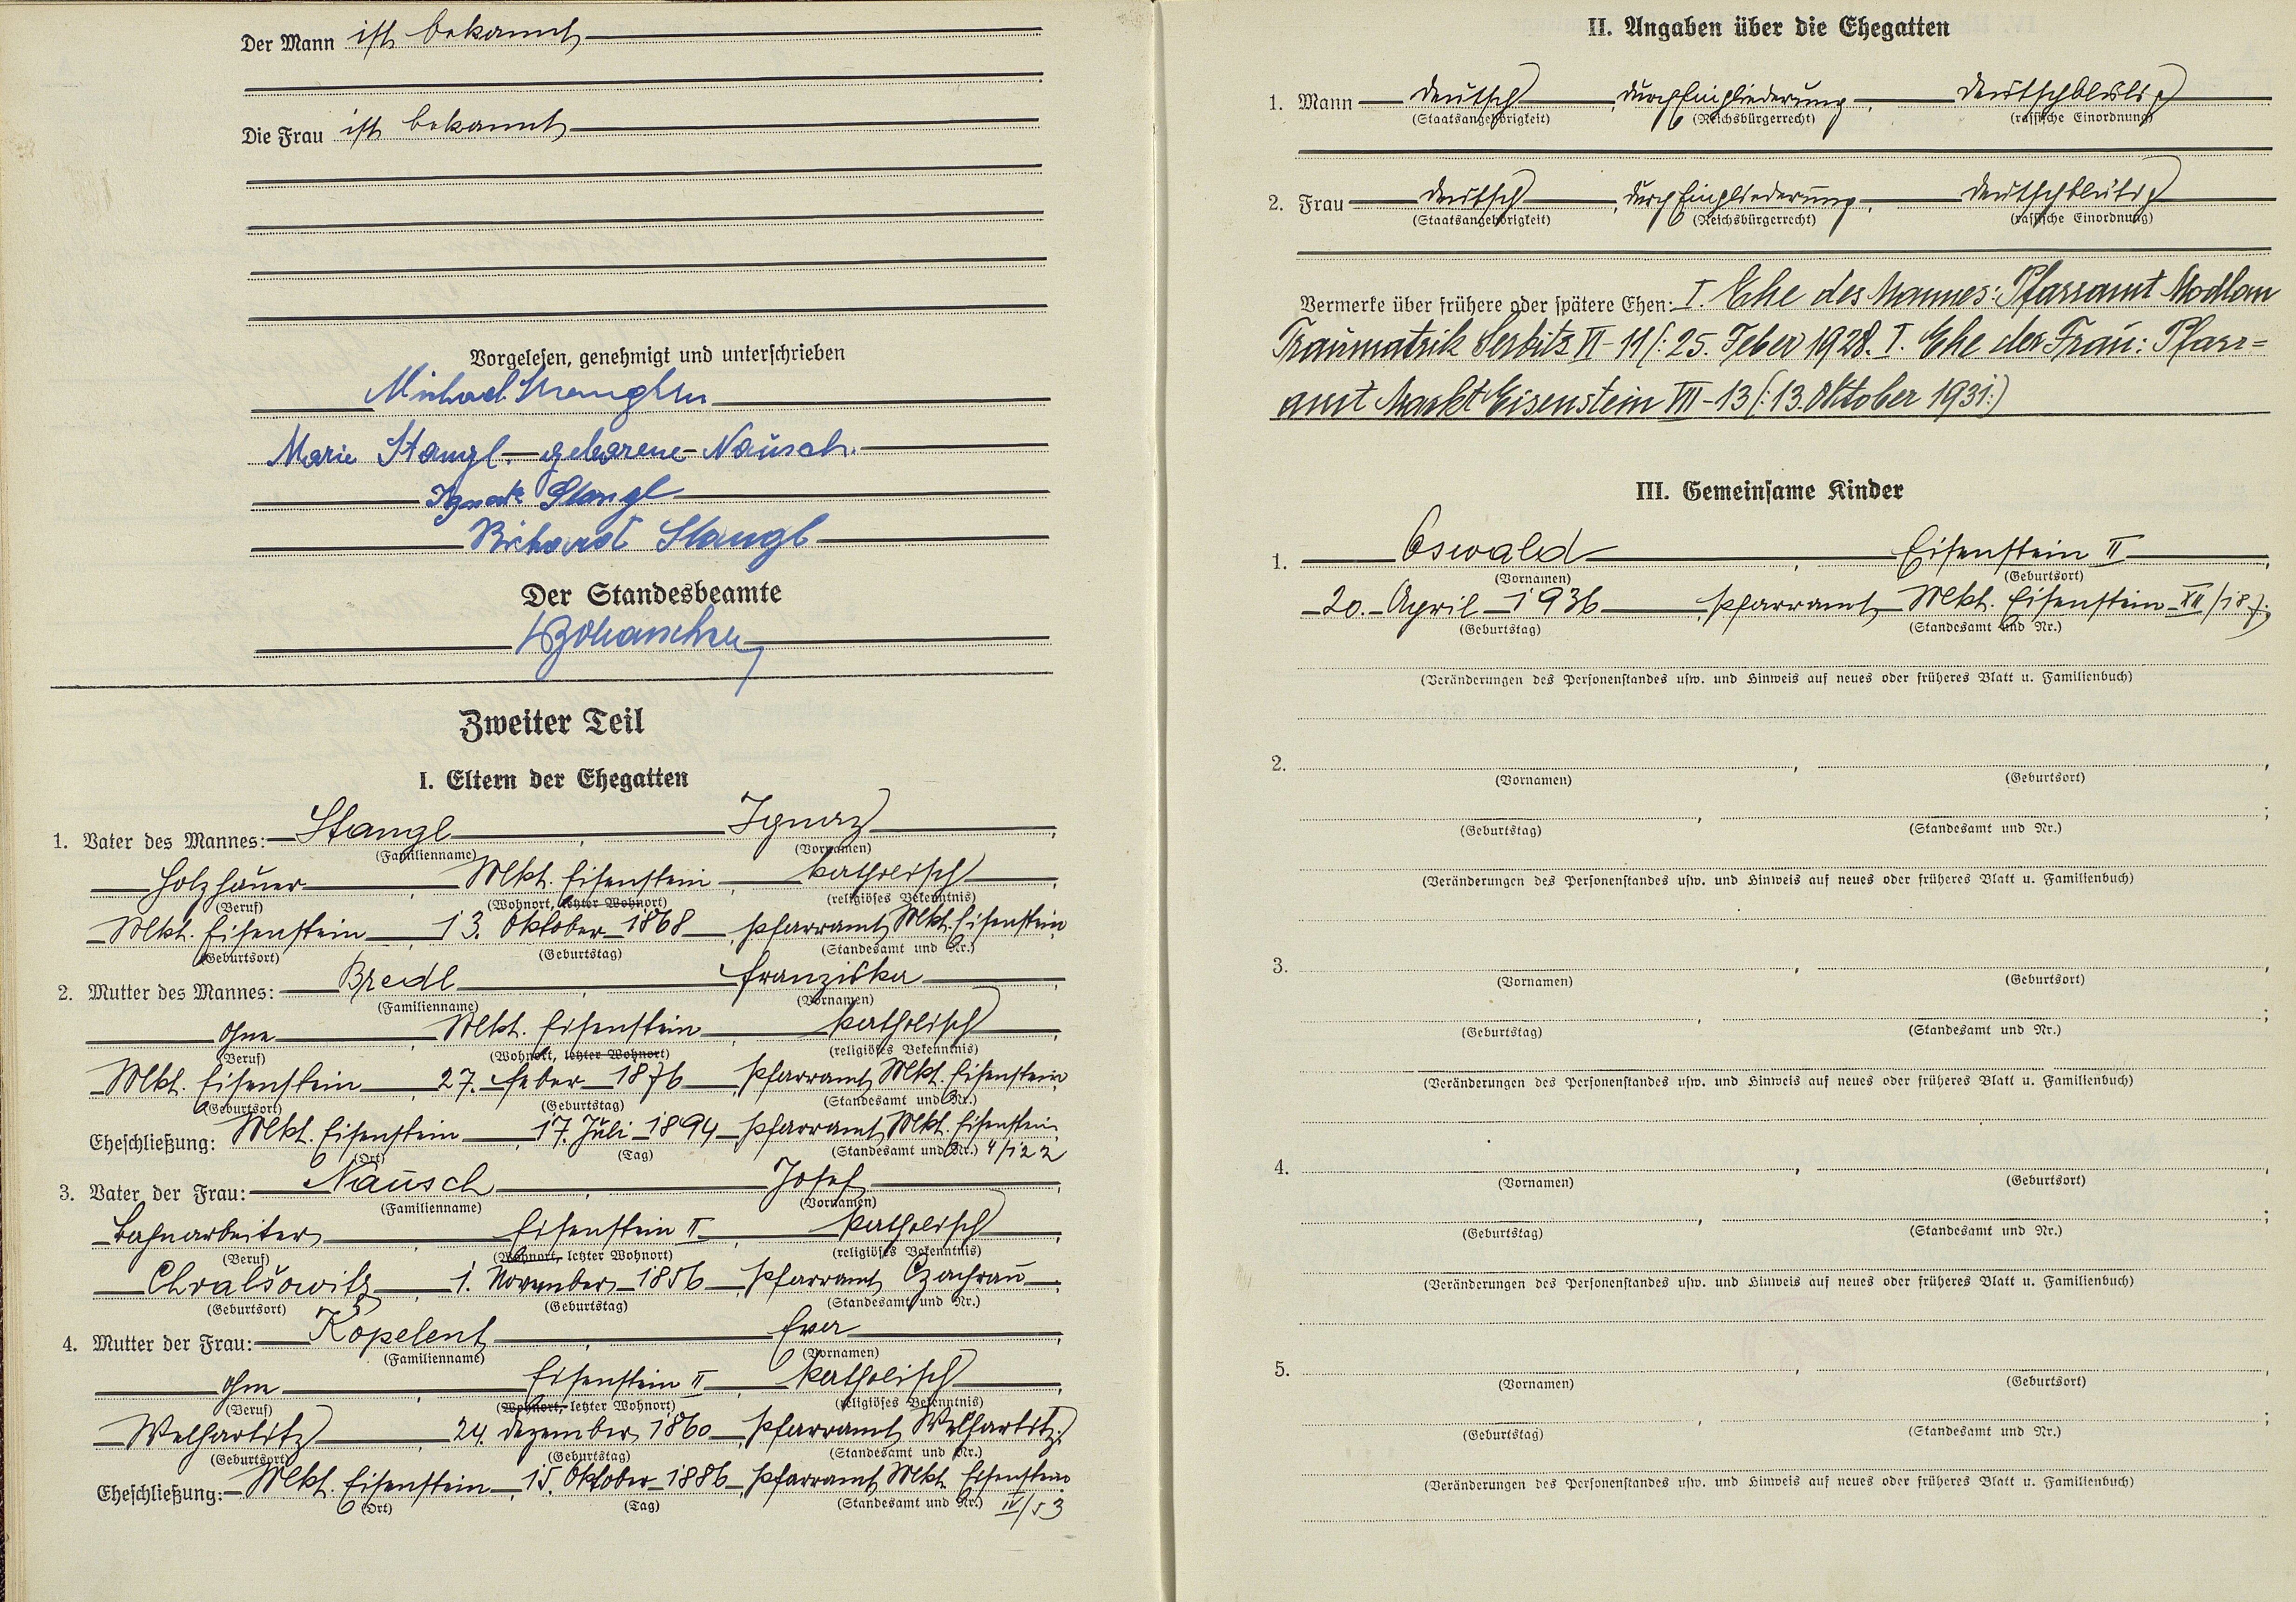 Der Mann ist bekannt
Die Frau ist bekannt
Vorgelesen, genehmigt und unterschrieben
Michael
Marie Stangl. geborene Nausch.
Ignatz Stangl
Richard Stangl
Der Standesbeamte
Zweiter Teil
I. Eltern der Ehegatten
1. Vater des Mannes: Stangl, Ignaz,
(Familienname) (Vornamen)
Holzhauer, Mkt. Eisenstein, katholisch,
(Beruf) (Wohnort, letzter Wohnort) (religiöses Bekenntnis)
Mkt. Eisenstein, 13. Oktober 1868, Pfarramt Mkt. Eisenstein
(Geburtsort) (Geburtstag) (Standesamt und Nr.)
2. Mutter des Mannes: Bredl, Franziska,
(Familienname) (Vornamen)
ohne, Mkt. Eisenstein, katholisch,
(Beruf) (Wohnort, letzter Wohnort) (religiöses Bekenntnis)
Mkt. Eisenstein, 27. Feber 1876, Pfarramt Mkt. Eisenstein
(Geburtsort) (Geburtstag) (Standesamt und Nr.)
Eheschließung: Mkt. Eisenstein, 17. Juli 1894, Pfarramt Mkt. Eisenstein
(Ort) (Tag) (Standesamt und Nr.) 4/122
3. Vater der Frau: Nausch, Josef,
(Familienname) (Vornamen)
Bahnarbeiter, Eisenstein II, katholisch,
(Beruf) (Wohnort, letzter Wohnort) (religiöses Bekenntnis)
Chvalšowitz, 1. November 1856, Pfarramt Czachrau.
(Geburtsort) (Geburtstag) (Standesamt und Nr.)
4. Mutter der Frau: Kopelent, Eva,
(Familienname) (Vornamen)
ohne, Eisenstein II, katholisch,
(Beruf) (Wohnort, letzter Wohnort) (religiöses Bekenntnis)
Welhartitz, 24. Dezember 1860, Pfarramt Welhartitz.
(Geburtsort) (Geburtstag) (Standesamt und Nr.)
Eheschließung: Mkt. Eisenstein, 15. Oktober 1886, Pfarramt Mkt. Eisenstein
(Ort) (Tag) (Standesamt und Nr.) IV/53
II. Angaben über die Ehegatten
1. Mann deutsch, durch Eingliederung, deutschblütig
(Staatsangehörigkeit) (Reichsbürgerrecht) (rassische Einordnung)
2. Frau deutsch, durch Eingliederung, deutschblütig
(Staatsangehörigkeit) (Reichsbürgerrecht) (rassische Einordnung)
Vermerke über frühere oder spätere Ehen: I. Ehe des Mannes: Pfarramt Modlan
Traumatrik Serbitz VI-11 (: 25. Feber 1928. I. Ehe der Frau: Pfarr=
amt Markt Eisenstein VII-13 (: 13. Oktober 1931:)
III. Gemeinsame Kinder
1. Oswald, Eisenstein II,
(Vornamen) (Geburtsort)
20. April 1936, Pfarramt Mkt. Eisenstein XII/187;
(Geburtstag) (Standesamt und Nr.)
(Veränderungen des Personenstandes usw. und Hinweis auf neues oder früheres Blatt u. Familienbuch)
2. , ,
(Vornamen) (Geburtsort)
, ;
(Geburtstag) (Standesamt und Nr.)
(Veränderungen des Personenstandes usw. und Hinweis auf neues oder früheres Blatt u. Familienbuch)
3. , ,
(Vornamen) (Geburtsort)
, ;
(Geburtstag) (Standesamt und Nr.)
(Veränderungen des Personenstandes usw. und Hinweis auf neues oder früheres Blatt u. Familienbuch)
4. , ,
(Vornamen) (Geburtsort)
, ;
(Geburtstag) (Standesamt und Nr.)
(Veränderungen des Personenstandes usw. und Hinweis auf neues oder früheres Blatt u. Familienbuch)
5. , ,
(Vornamen) (Geburtsort)
, ;
(Geburtstag) (Standesamt und Nr.)
(Veränderungen des Personenstandes usw. und Hinweis auf neues oder früheres Blatt u. Familienbuch)